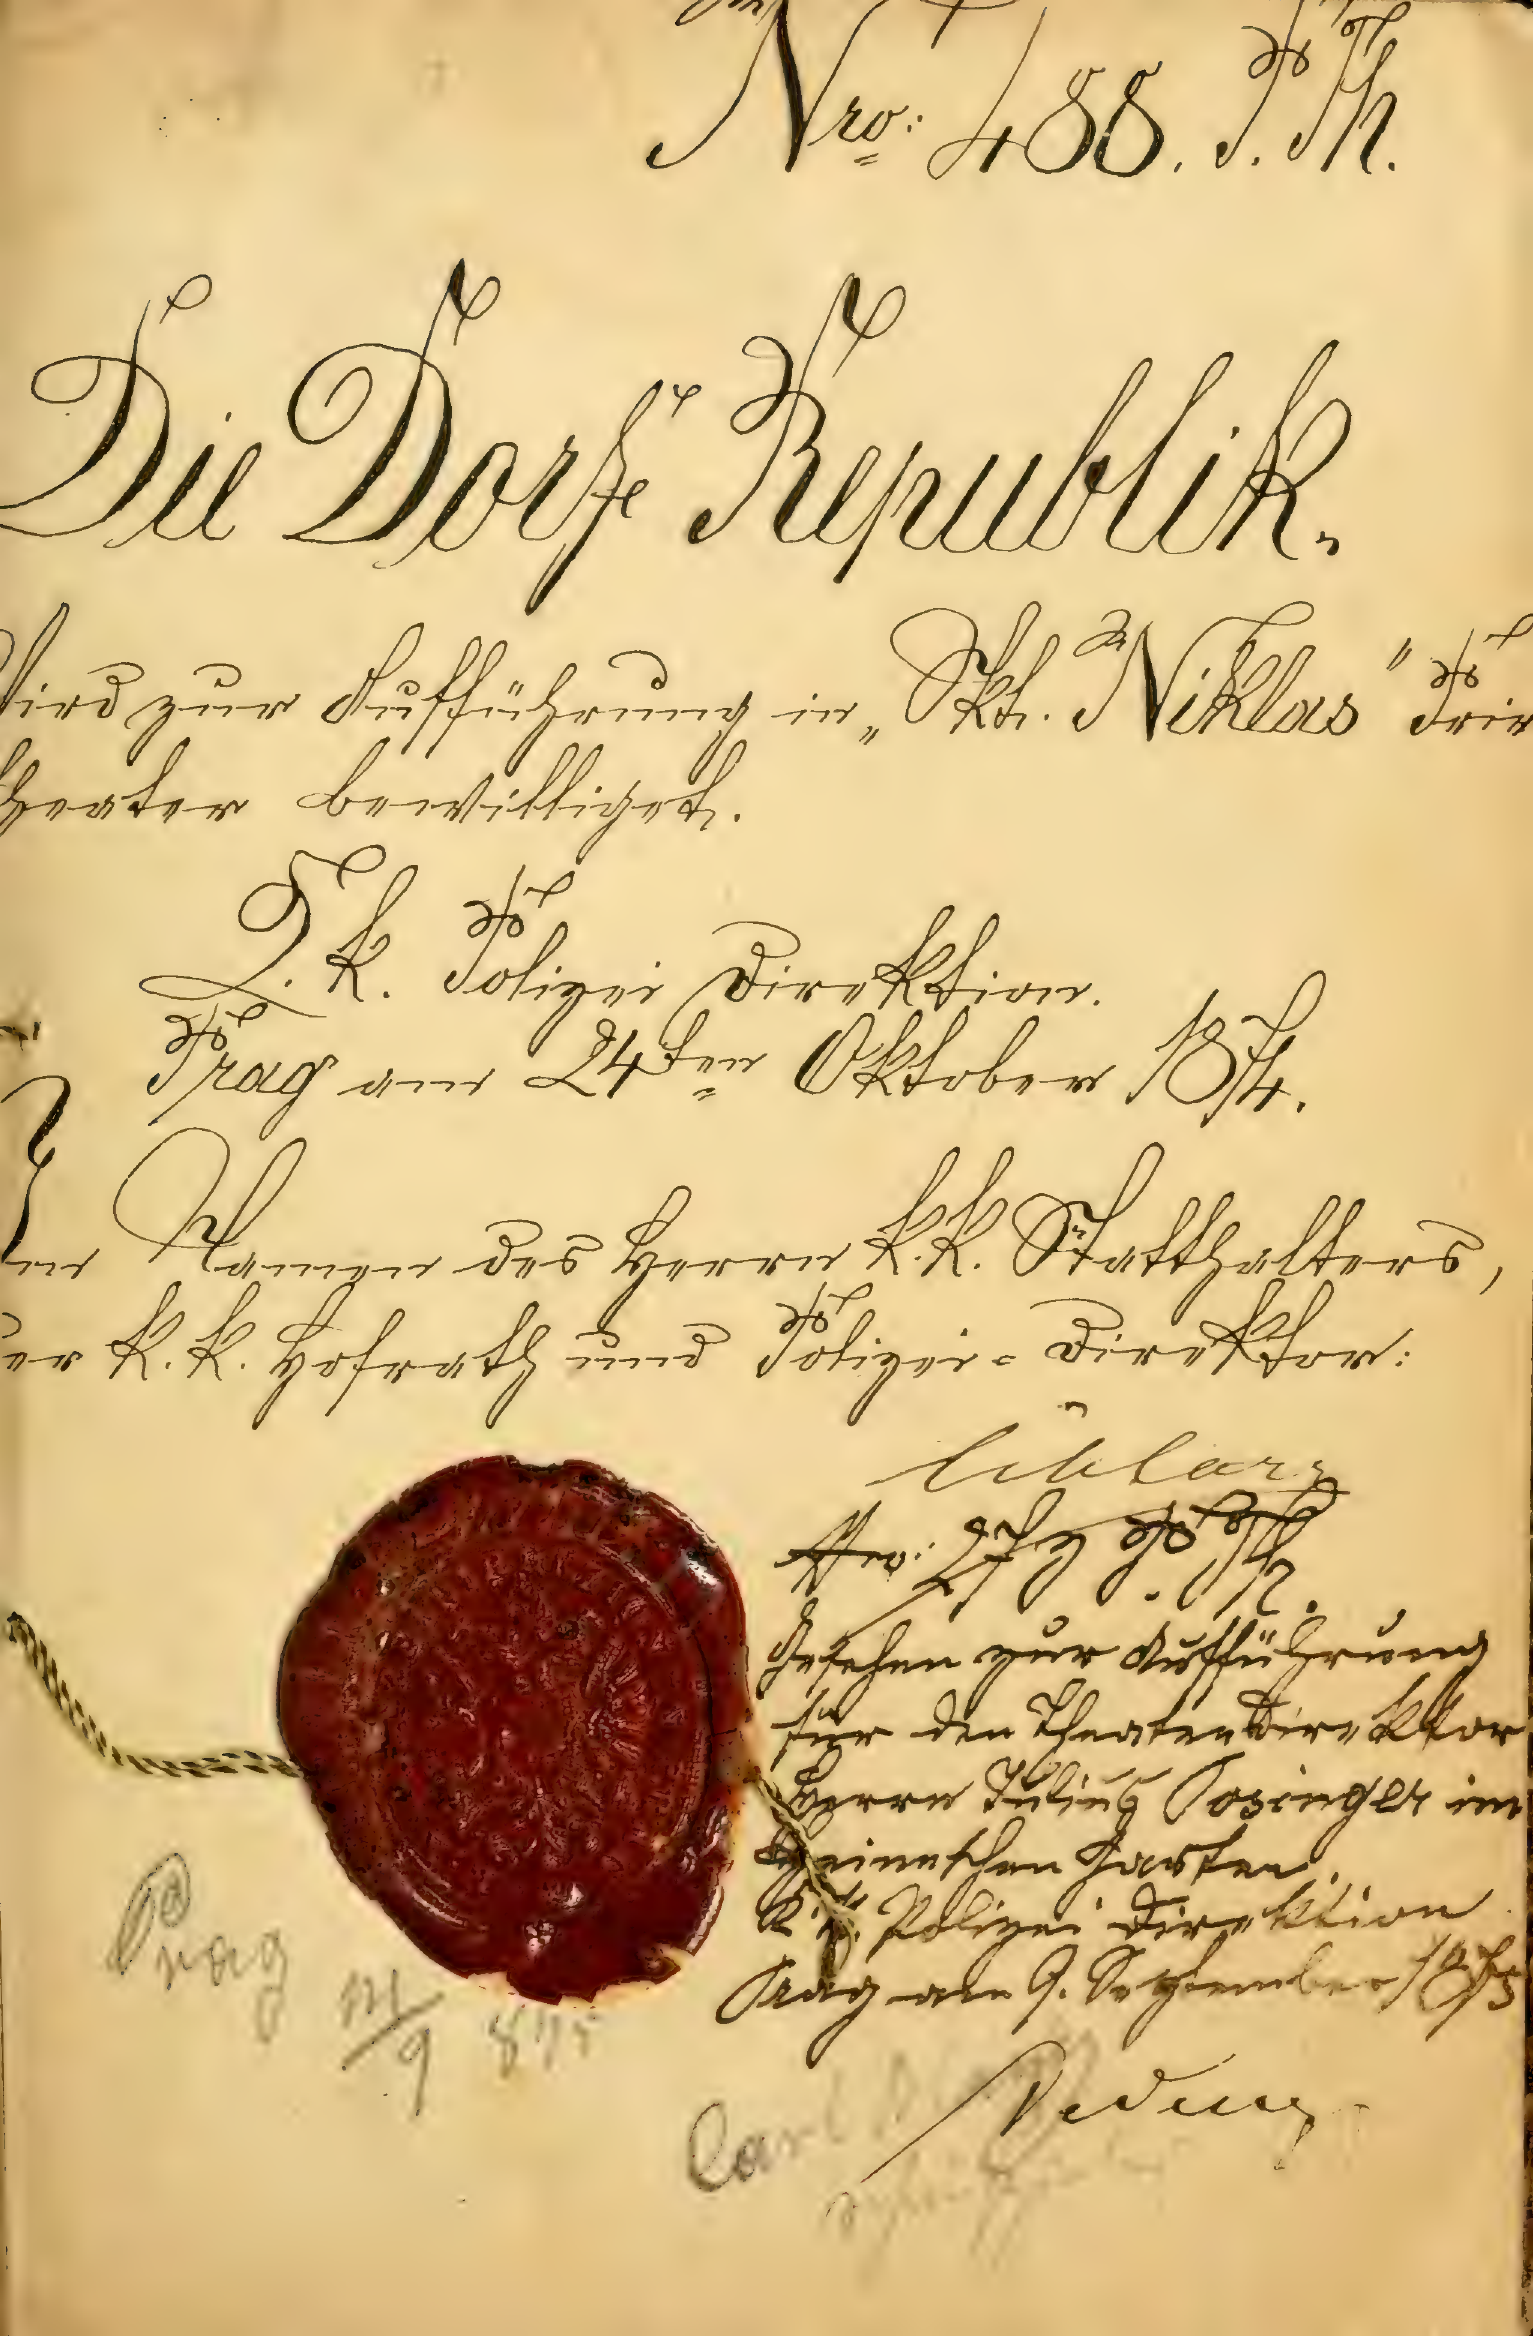 Nro: 488. P. Th.
Die Dorf Republik.
Wird zur Aufführung in „Skt. Niklas" 
theater bewilliget.
K. k. Polizei Direktion.
Prag am 24ten Oktober 1874.
Im Namen des Herrn k. k. Statthalters,
der k. k. Hofrath und Polizei-Direktor:
Nro: P. Th.
Gesehen zur Aufführung
für den Theaterdirektor
Herrn Julius im
Heineschen Garten.
k. k. Polizei Direktion
Prag am 9. September 1875
Prag 14/9 875
Carl